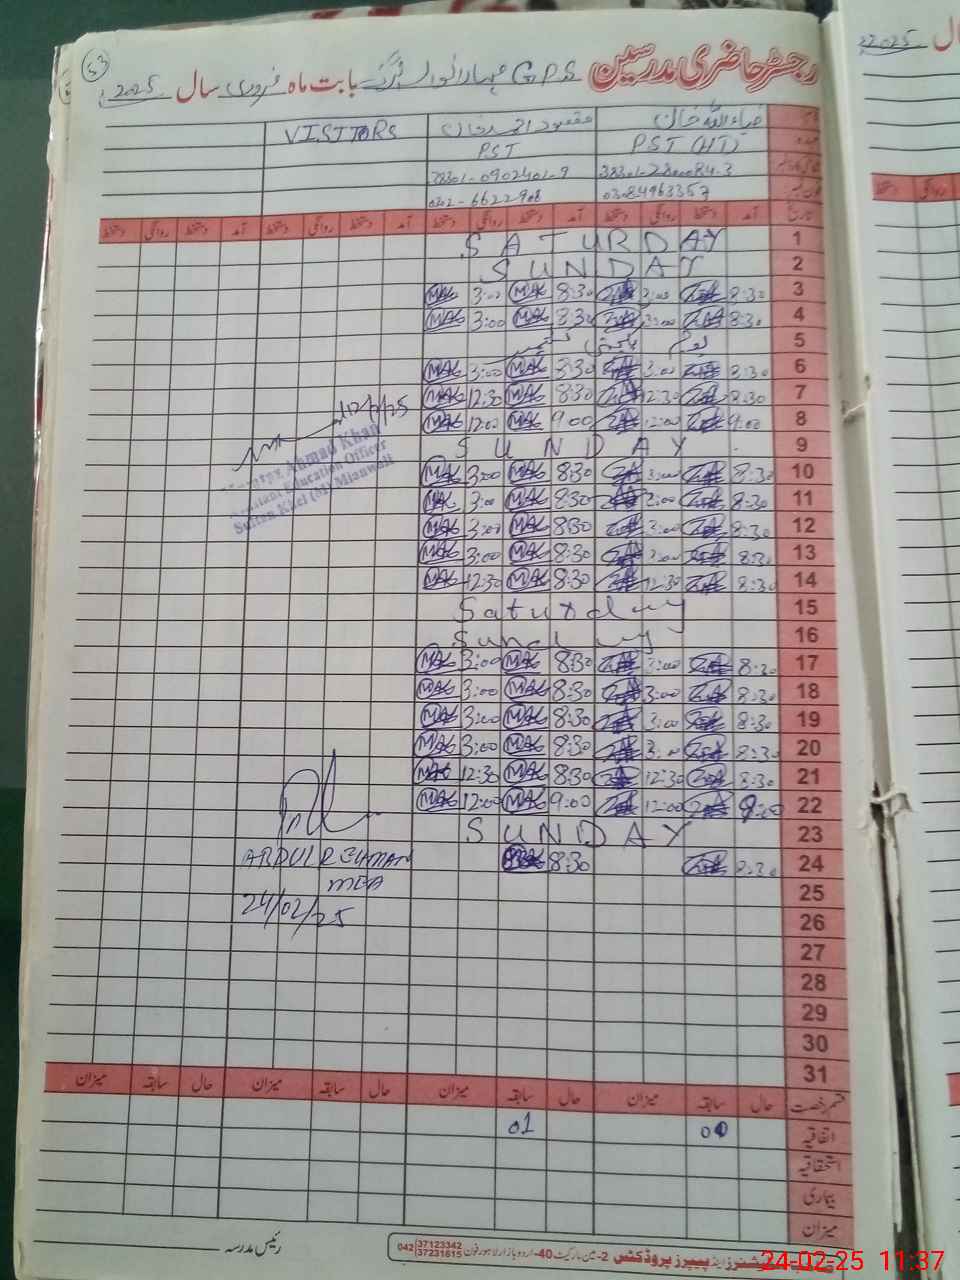 53
رجسٹر حاضری مدرسین GPS بابت ماہ فروری سال 2025
ضیاء اللہ خان مقصود احمد خان VISITORS
PST (HT) PST
38301-0902401-9
03084963357 0302-6622908
تاریخ آمد دستخط روانگی دستخط آمد دستخط روانگی دستخط آمد دستخط روانگی دستخط آمد دستخط روانگی دستخط
1 SATURDAY
2 SUNDAY
3 8:30 3:00 8:30 MAK 3:00 MAK
4 8:30 3:00 8:30 MAK 3:00 MAK
5 یوم یکجہتی کشمیر
6 8:30 3:00 8:30 MAK 3:00 MAK
7 8:30 12:30 8:30 MAK 12:30 MAK
8 9:00 12:00 9:00 MAK 12:00 MAK
9 SUNDAY
10 8:30 3:00 8:30 MAK 3:00 MAK
11 8:30 3:00 8:30 MAK 3:00 MAK
12 8:30 3:00 8:30 MAK 3:00 MAK
13 8:30 3:00 8:30 MAK 3:00 MAK
14 8:30 12:30 8:30 MAK 12:30 MAK
15 Saturday
16 Sunday
17 8:30 3:00 8:30 MAK 3:00 MAK
18 8:30 3:00 8:30 MAK 3:00 MAK
19 8:30 3:00 8:30 MAK 3:00 MAK
20 8:30 3:00 8:30 MAK 3:00 MAK
21 8:30 12:30 8:30 MAK 12:30 MAK
22 9:00 12:00 9:00 MAK 12:00 MAK
23 SUNDAY
24 8:30 8:30
25
26
27
28
29
30
31
Ahmad Khan
Assistant Education Officer
Sultan Khel (M) Mianwali
ABDUL REHMAN
MEA
24/02/25
قسم رخصت حال سابقہ میزان حال سابقہ میزان حال سابقہ میزان حال سابقہ میزان
اتفاقیہ 01
استحقاقیہ
بیماری
میزان
رئیس مدرسہ
پیپرز پروڈکٹس 2-مین مارکیٹ 40-اردو بازار لاہور فون 042 37123342
37231615
24-02-25 11:37
22025